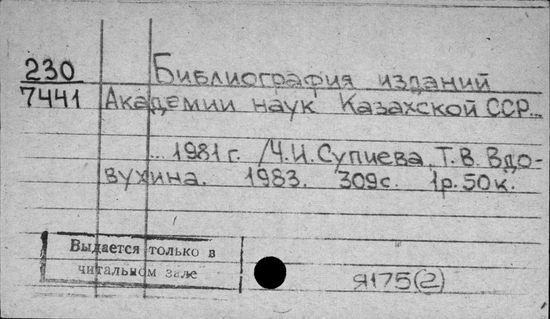 230 Библиография изданий
7441 Академии наук Казахской ССР...
... 1981 г. /Ч.И. Супиева, Т.В. Вдо-
вухина. 1983. 309 с. 1р. 50 к.
Выдается только в
читальном зале
Я175(2)